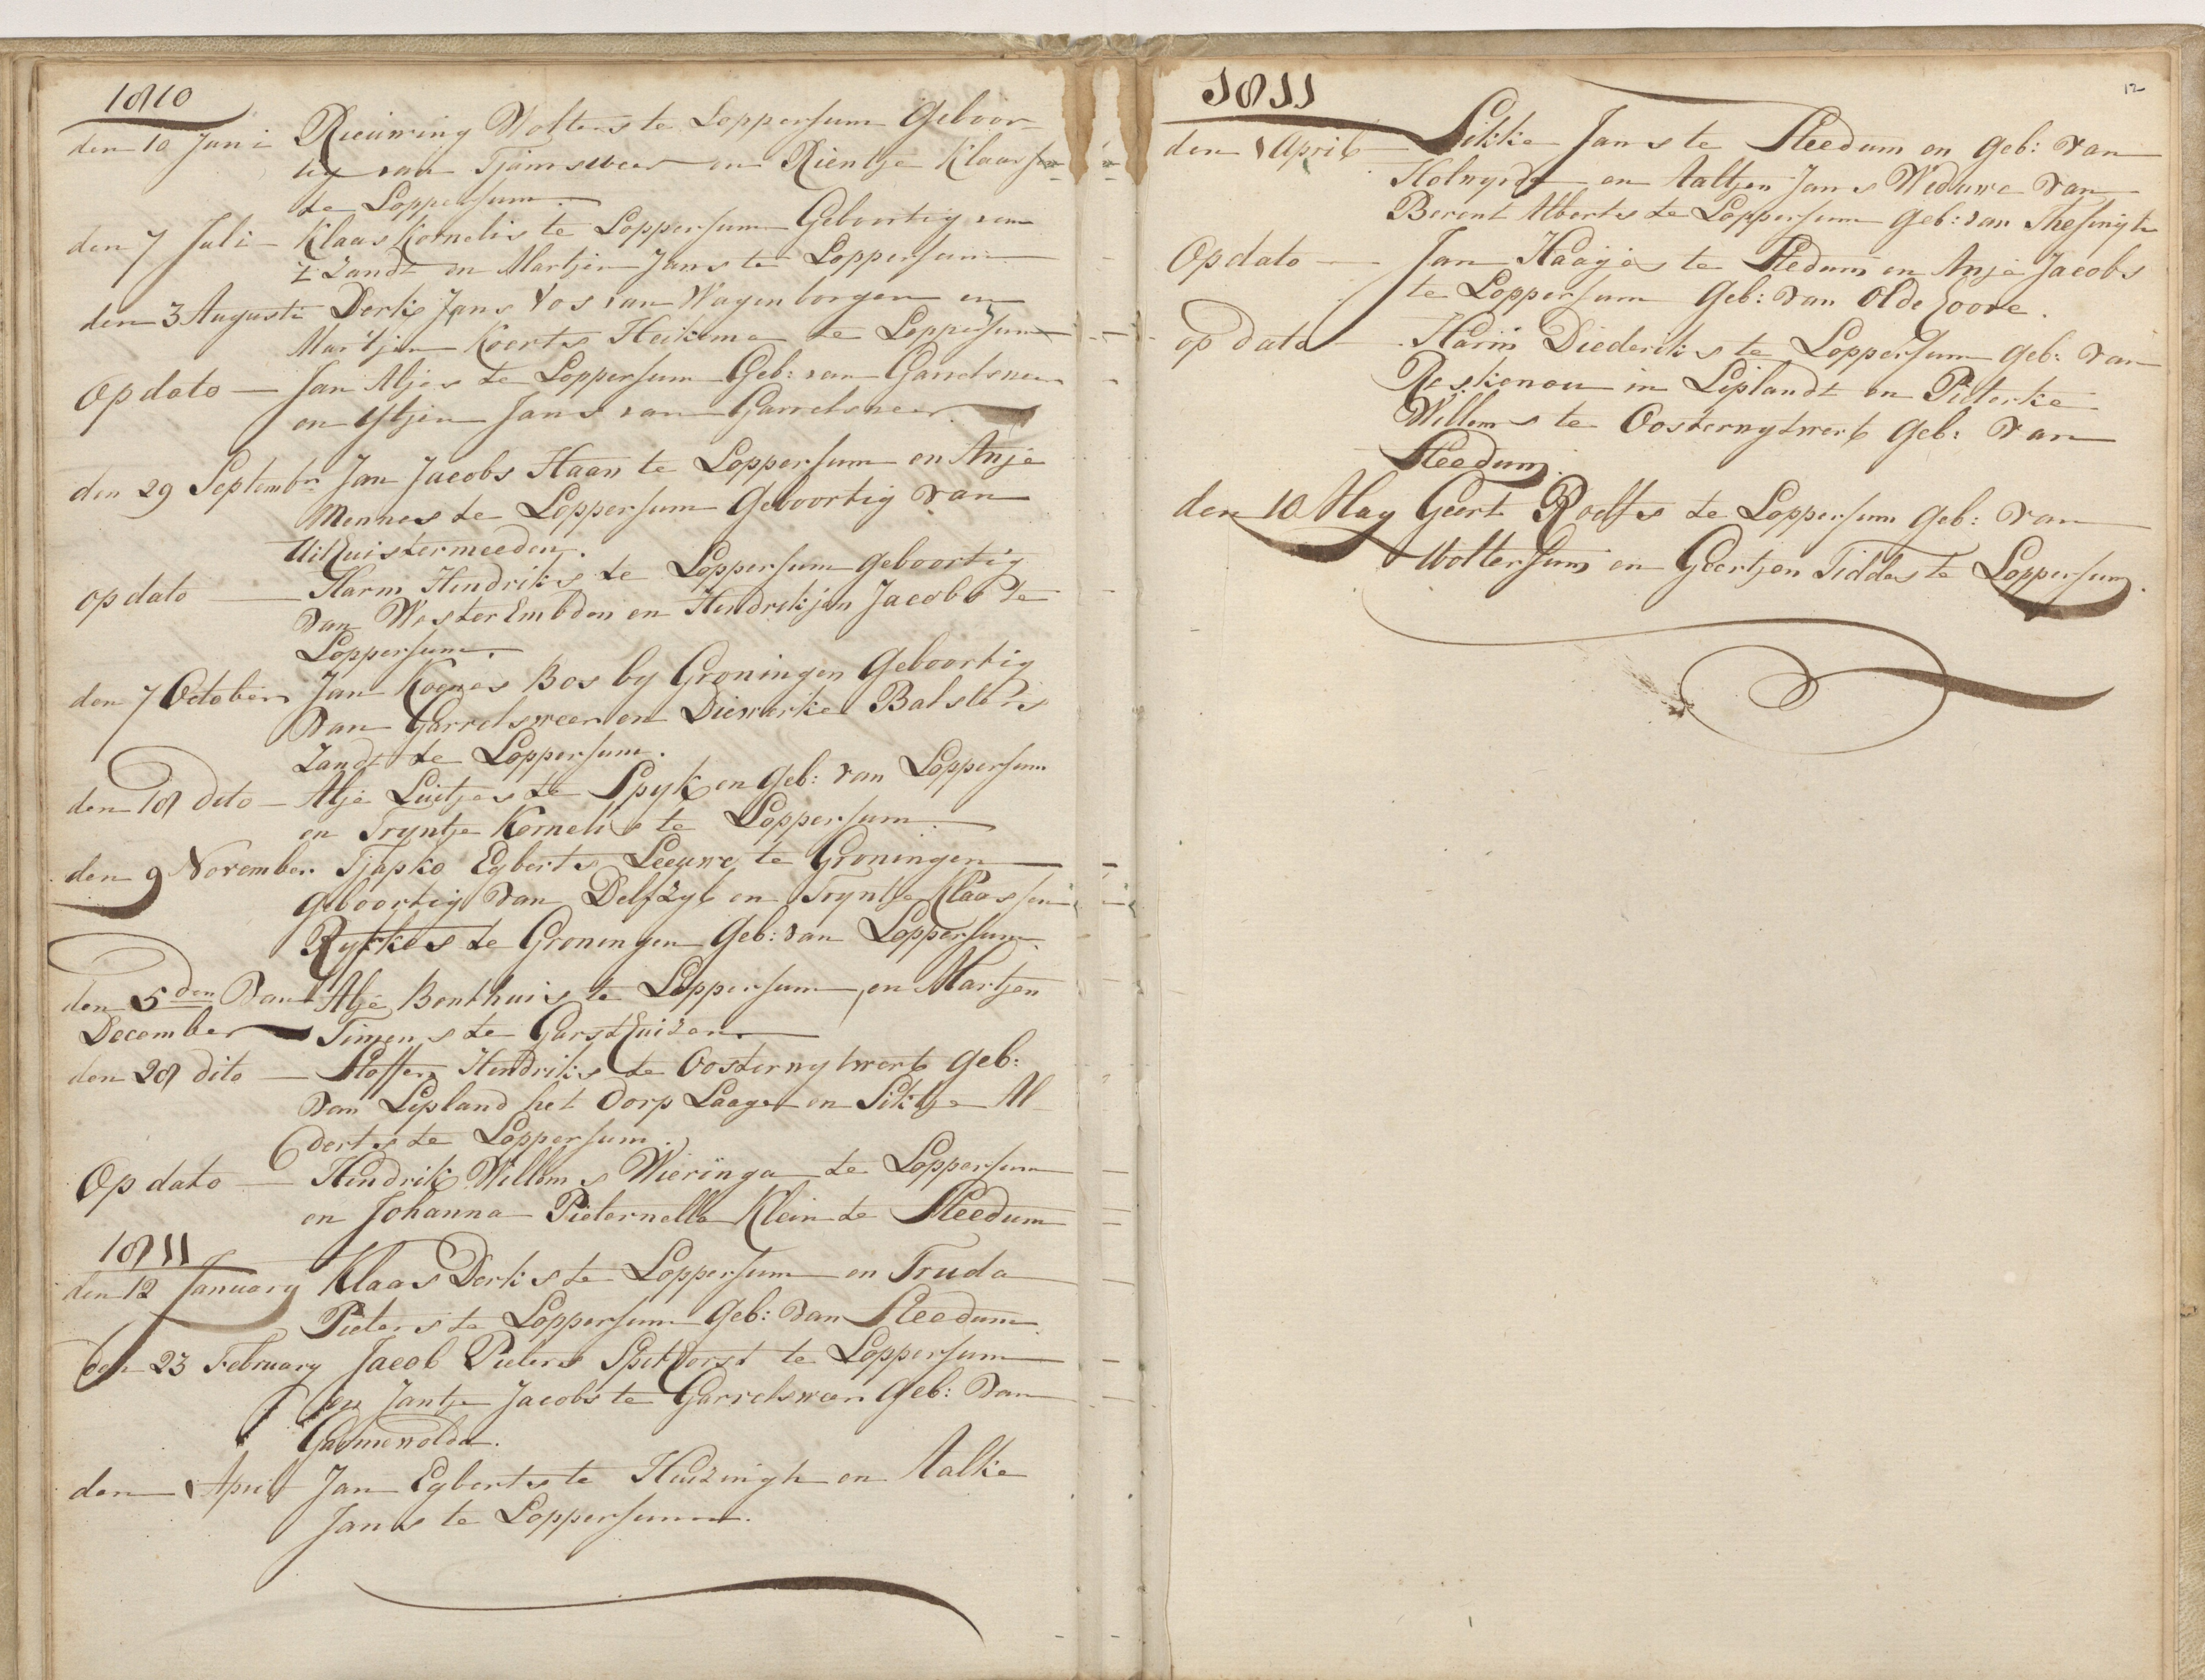 1810
den 10 Juni Rieuwing Wolters te Loppersum Geboor-
tig van Tjamsweer en Rientje Klaassen
te Loppersum.
den 7 Juli Klaas Kornelis te Loppersum Geboortig van
't Zandt en Martjen Jans te Loppersum
den 3 Augusti Derk Jans Vos van Wagenborgen en
Martjen Koerts Heikema te Loppersum
Op dato Jan Aljes te Loppersum Geb: van Garrelsweer
en Ytjen Jans van Garrelsweer
den 29 September Jan Jacobs Haan te Loppersum en Anje
Mennes te Loppersum Geboortig van
Uithuistermeeden.
op dato Harm Hendriks te Loppersum geboortig
van Wester Embden en Hendrikjen Jacobs te
Loppersum.
den 7 October Jan Koenes Bos by Groningen Geboortig
van Garrelsweer en Diewerke Balsters
Zandt te Loppersum.
den 18 dito Alje Luitjes te Spyk en Geb: van Loppersum
en Tryntje Kornelis te Loppersum
den 9 November Tjapko Egberts Leeuwe te Groningen
Geboortig van Delfzyl en Tryntje Klaassen
Rytkes te Groningen Geb: van Loppersum.
den 5den van Alje Bonthuis te Loppersum, en Martjen
December Timens te Garsthuizen.
den 28 dito Stoffer Hendriks te Oosternytwert Geb:
van Lipland het dorp Laage en Siktje Al-
derts te Loppersum.
Op dato Hendrik Willems Wieringa te Loppersum
en Johanna Pieternella Klein te Steedum
1811
den 12 January Klaas Derks te Loppersum en Truda
Pieters te Loppersum Geb: van Steedum.
den 23 February Jacob Pieters Spithorst te Loppersum
en Jantje Jacobs te Garrelsweer Geb: van
Garmerwolde.
den 1 April Jan Egberts te Huizingh en Aalke
Jans te Loppersum.
1811
12
den 1 April Sikke Jans te Steedum en geb: van
Kolnyedt en Aaltjen Jans Weduwe van
Berent Alberts te Loppersum geb: van Thesingh
Op dato Jan Haajes te Stedum en Anje Jacobs
te Loppersum Geb: van Olde hoove.
op dato Harm Diederiks te Loppersum geb: van
Reskenou in Liplandt en Pieterke
Willems te Oosternytwert Geb: van
Steedum.
den 10 May Geert Roelfs te Loppersum Geb: van
Woltersum en Geertjen Tiddes te Loppersum.